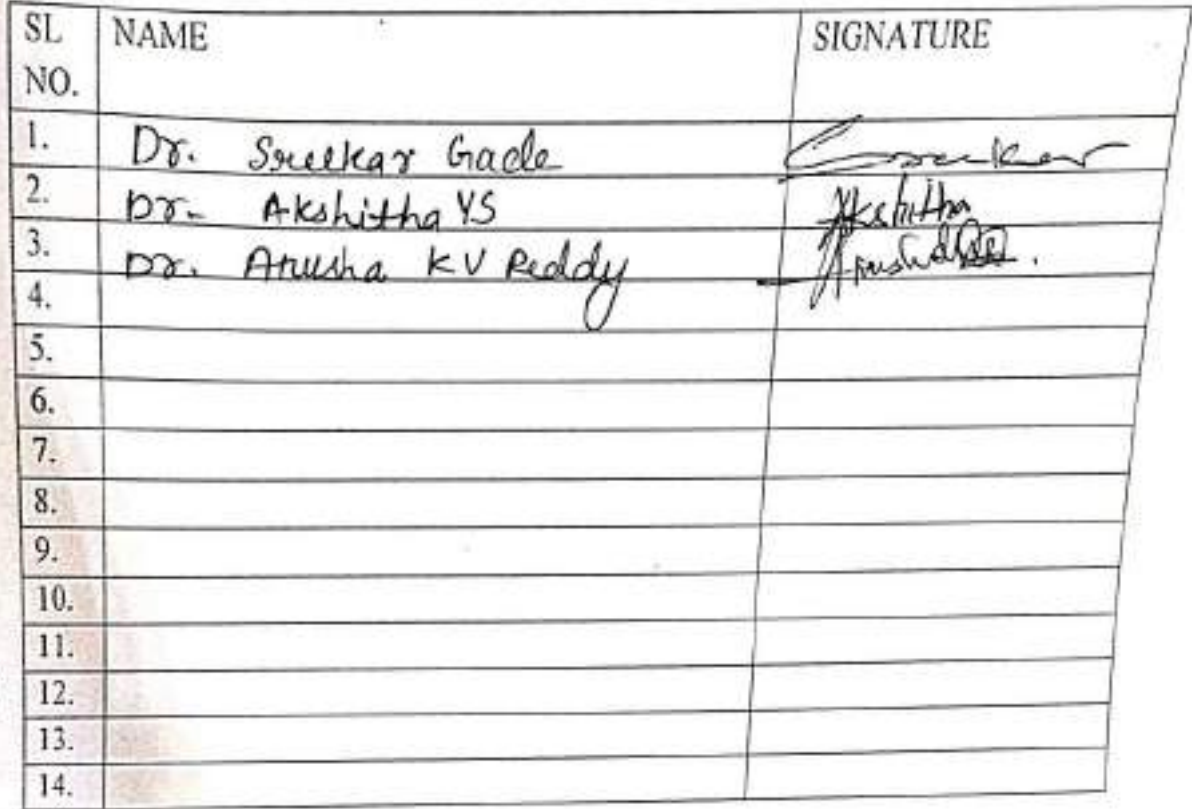 SL NO. NAME SIGNATURE
1. Dr. Sreekar Gade Sreekar
2. Dr. Akshitha YS Akshitha
3. Dr. Anusha KV Reddy
4.
5.
6.
7.
8.
9.
10.
11.
12.
13.
14.